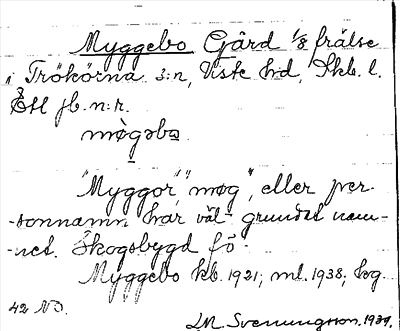 Myggebo Gård 1/8 frälse
i Trökörna s:n, Viste hd, Skb. l.
Ett jb. n:r.
mògəba
"Myggor", "møg", eller per-
-sonnamn har väl grundat nam-
-net. Skogsbygd fö
Myggebo kb. 1921; ml. 1938; hg.
42 ND.
LM. Svenungsson. 1939.